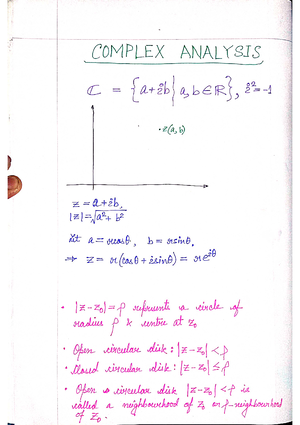 COMPLEX ANALYSIS
ℂ = {a+ib | a,b∈ℝ}, i²=-1
• z(a,b)
z = a+ib,
|z| = √a²+b²
Let a = rcosθ, b = rsinθ.
⇒ z = r(cosθ + isinθ) = re^iθ
• |z-z₀| = ρ represents a circle of
radius ρ & centre at z₀
• Open circular disk : |z-z₀| < ρ
• Closed circular disk : |z-z₀| ≤ ρ
• Open circular disk |z-z₀| < ρ is
called a neighbourhood of z₀ or ρ-neighbourhood
of z₀.